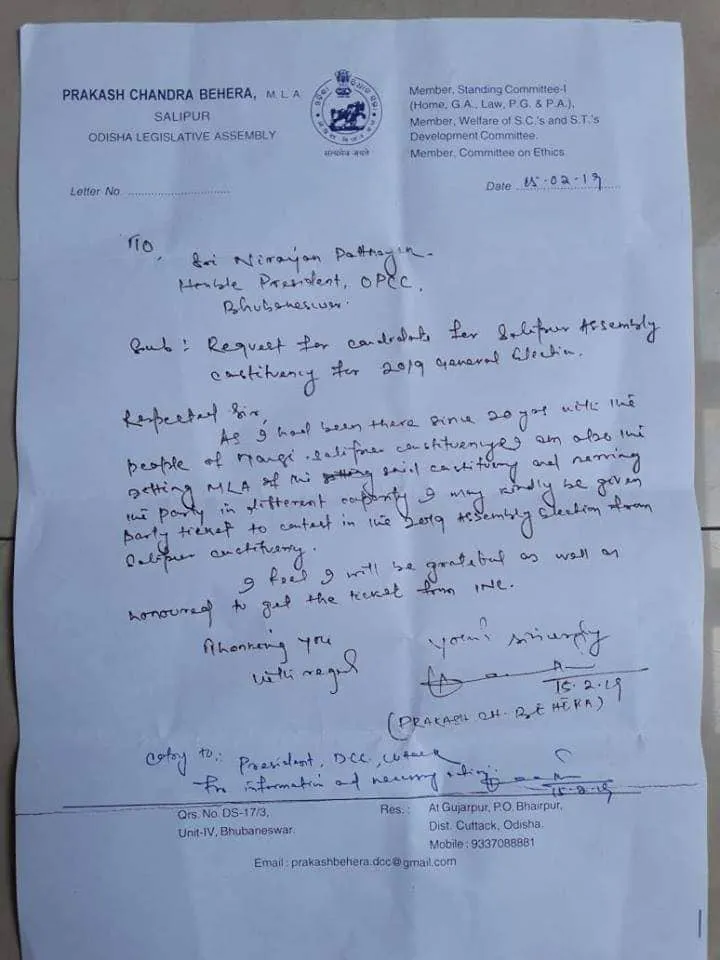 PRAKASH CHANDRA BEHERA, M.L.A
SALIPUR
ODISHA LEGISLATIVE ASSEMBLY
सत्यमेव जयते
Member, Standing Committee-I
(Home, G.A., Law, P.G. & P.A.),
Member, Welfare of S.C.'s and S.T.'s
Development Committee.
Member, Committee on Ethics
Letter No. ..............................
Date 15-02-19
To,
Sri Niranjan Pattnayak.
Honble President, OPCC,
Bhubaneswar.
Sub: Request for candidate for Salipur Assembly
constituency for 2019 General Election.
Respected Sir,
As I had been there since 20 yrs with the
people of Salipur constituency I am also the
setting MLA of the said constituency and
the party in different capacity I may kindly be given
party ticket to contest in the 2019 Assembly Election from
Salipur constituency.
I feel I will be grateful as well as
honoured to get the ticket from INC.
Thanking you
with regards
yours sincerely
15.2.19
(PRAKASH CH. BEHERA)
Copy to: President, DCC, Cuttack
For information and necessary action.
15.2.19
Qrs. No. DS-17/3,
Unit-IV, Bhubaneswar.
Res.: At Gujarpur, P.O. Bhairpur,
Dist. Cuttack, Odisha.
Mobile : 9337088881
Email : prakashbehera.dcc@gmail.com